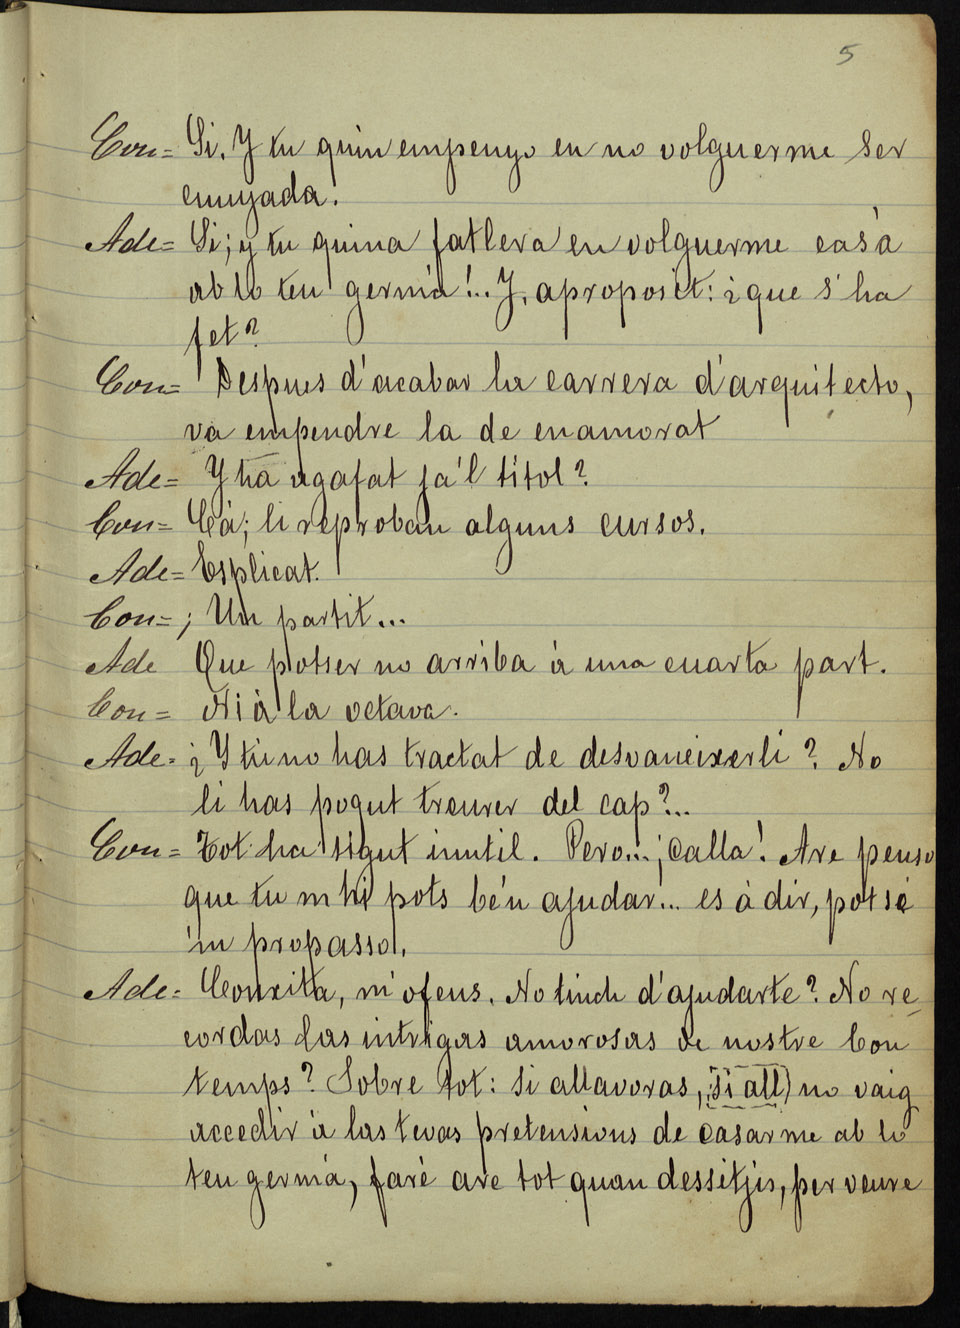 5
Con= Si. Y tu quin empenyo en no volguerme ser
cunyada.
Ade= Si; y tu quina fatlera en volguerme casá
ab lo teu germá!.. Y, aproposit: ¿que s'ha
fet?
Con= Despues d'acabar la carrera d'arquitecto,
va empendre la de enamorat
Ade= Y ha agafat ja'l títol?
Con= Cá; li reproban alguns cursos.
Ade= Esplicat.
Con= ¡Un partit...
Ade Que potser no arriba á una cuarta part.
Con= Ni á la octava.
Ade= ¿Y tú no has tractat de desvaneixerli? No
li has pogut treurer del cap?..
Con= Tot ha sigut inutil. Pero... ¡calla! Are penso
que tu m hi pots bé'n ajudar... es á dir, potse
'm propasso.
Ade= Conxita, m'ofens. No tinch d'ajudarte? No re
cordas las intrigas amorosas de nostre bon
temps? Sobre tot: si allavoras, (si all) no vaig
accedir á las tevas pretensions de casarme ab lo
teu germá, faré are tot quan dessitjis, per veure